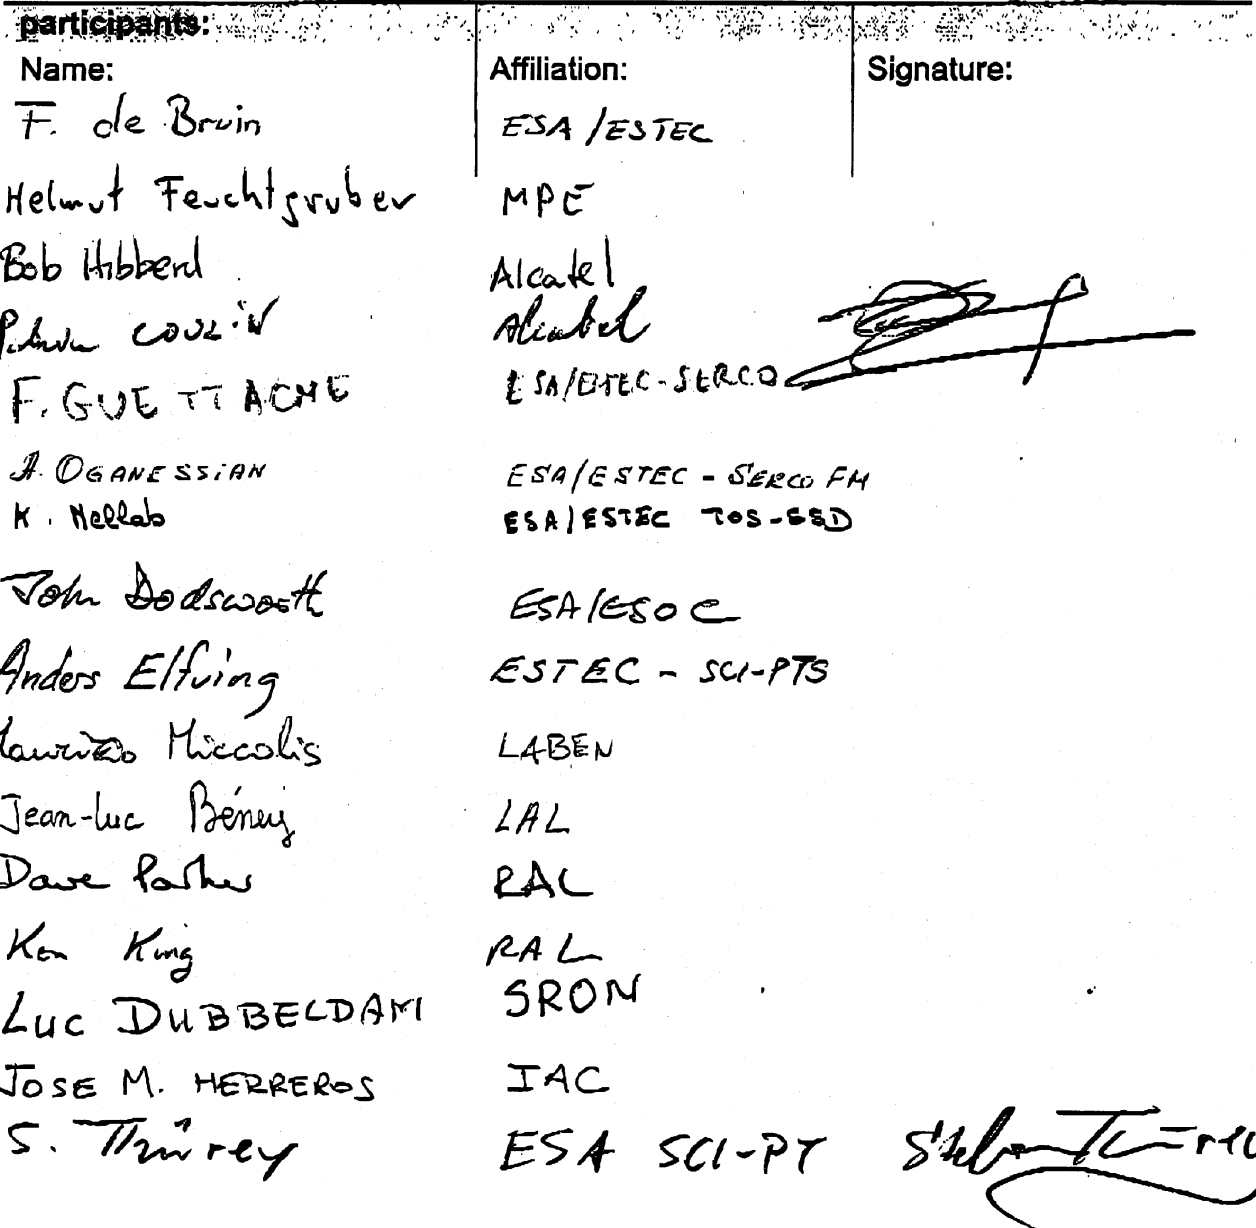 participants:
Name: Affiliation: Signature:
F. de Bruin ESA/ESTEC
Helmut Feuchtgruber MPE
Bob Hibberd Alcatel
COUZIN Alcatel
F. GUETTACHE ESA/ESTEC-SERCO
A. OGANESSIAN ESA/ESTEC - SERCO FM
K. Mellab ESA/ESTEC TOS-ESD
John Dodsworth ESA/ESOC
Anders Elfving ESTEC - SCI-PTS
Maurizio Miccolis LABEN
Jean-Luc LAL
Dave Parker RAL
Ken King RAL
Luc DUBBELDAM SRON
JOSE M. HERREROS IAC
S. Thürey ESA SCI-PT